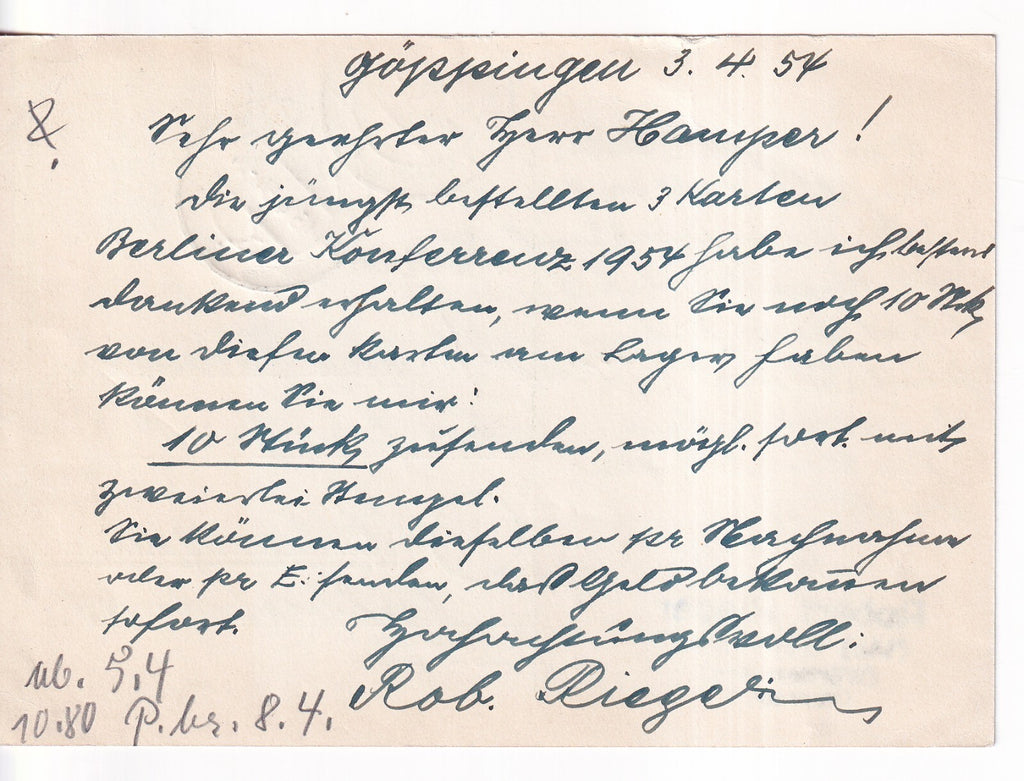 Göppingen 3. 4. 54
Sehr geehrter Herr Hamper!
Die jüngst bestellten 3 Karten
Berliner Konferrenz 1954 habe ich bestens
dankend erhalten, wenn Sie noch 10 Stck
von diesen Karten am Lager haben
können Sie mir:
10 Stück zusenden, mögl. sort. mit
zweierlei Stempel.
Sie können dieselben pr Nachnahme
oder pr E. senden, das Geld bekommen
sofort.
Hochachtungsvoll:
Rob. Riegel
ab. 5.4
10.80 P. br. 8.4.